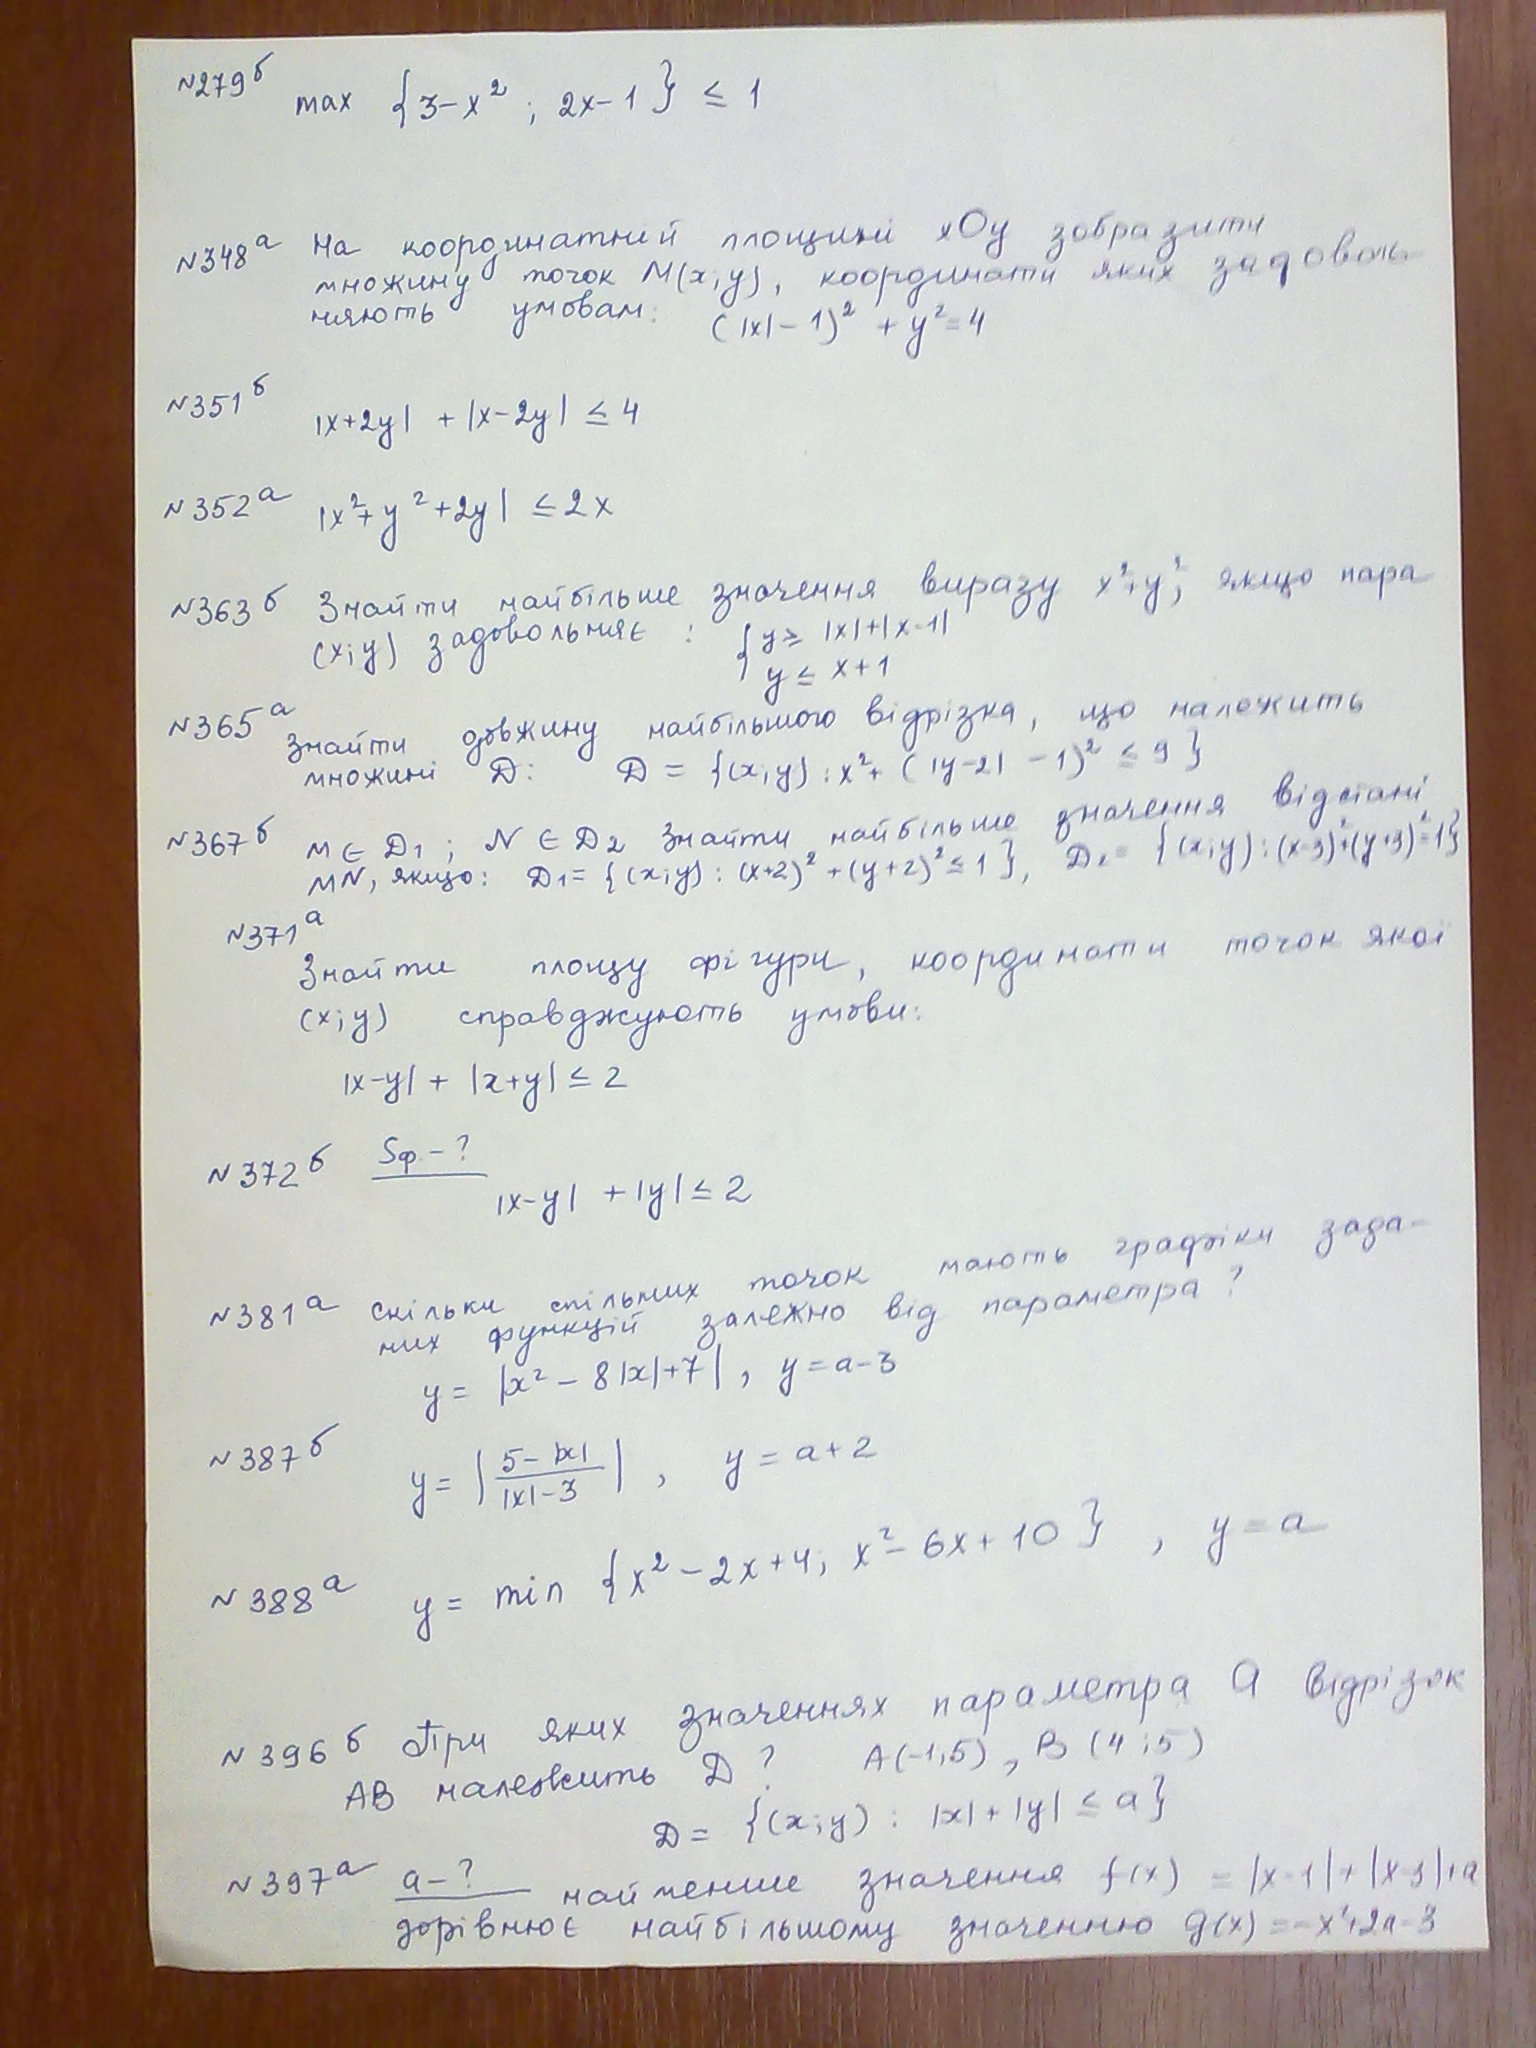 №279б max {3-x²; 2x-1} ≤ 1
№348а На координатній площині xOy зобразити
множину точок M(x;y), координати яких задоволь-
няють умовам: (|x|-1)² + y² = 4
№351б |x+2y| + |x-2y| ≤ 4
№352а |x²+y²+2y| ≤ 2x
№363б Знайти найбільше значення виразу x²+y², якщо пара
(x;y) задовольняє: { y ≥ |x|+|x-1|
y ≤ x+1
№365а Знайти довжину найбільшого відрізка, що належить
множині D: D = {(x;y): x²+(|y-2|-1)² ≤ 9}
№367б M ∈ D₁; N ∈ D₂ Знайти найбільше значення відстані
MN, якщо: D₁ = {(x;y): (x+2)²+(y+2)² ≤ 1}, D₂ = {(x;y): (x-3)²+(y+3)²=1}
№371а
Знайти площу фігури, координати точок якої
(x;y) справджують умови:
|x-y| + |x+y| ≤ 2
№372б Sф. - ?
|x-y| + |y| ≤ 2
№381а Скільки спільних точок мають графіки зада-
них функцій залежно від параметра?
y = |x²-8|x|+7|, y = a-3
№387б y = |(5-|x|)/(|x|-3)|, y = a+2
№388а y = min {x²-2x+4; x²-6x+10}, y = a
№396б При яких значеннях параметра a відрізок
AB належить D? A(-1;5), B(4;5)
D = {(x;y): |x|+|y| ≤ a}
№397а a - ? найменше значення f(x) = |x-1|+|x-3|+a
дорівнює найбільшому значенню g(x) = -x²+2a-3